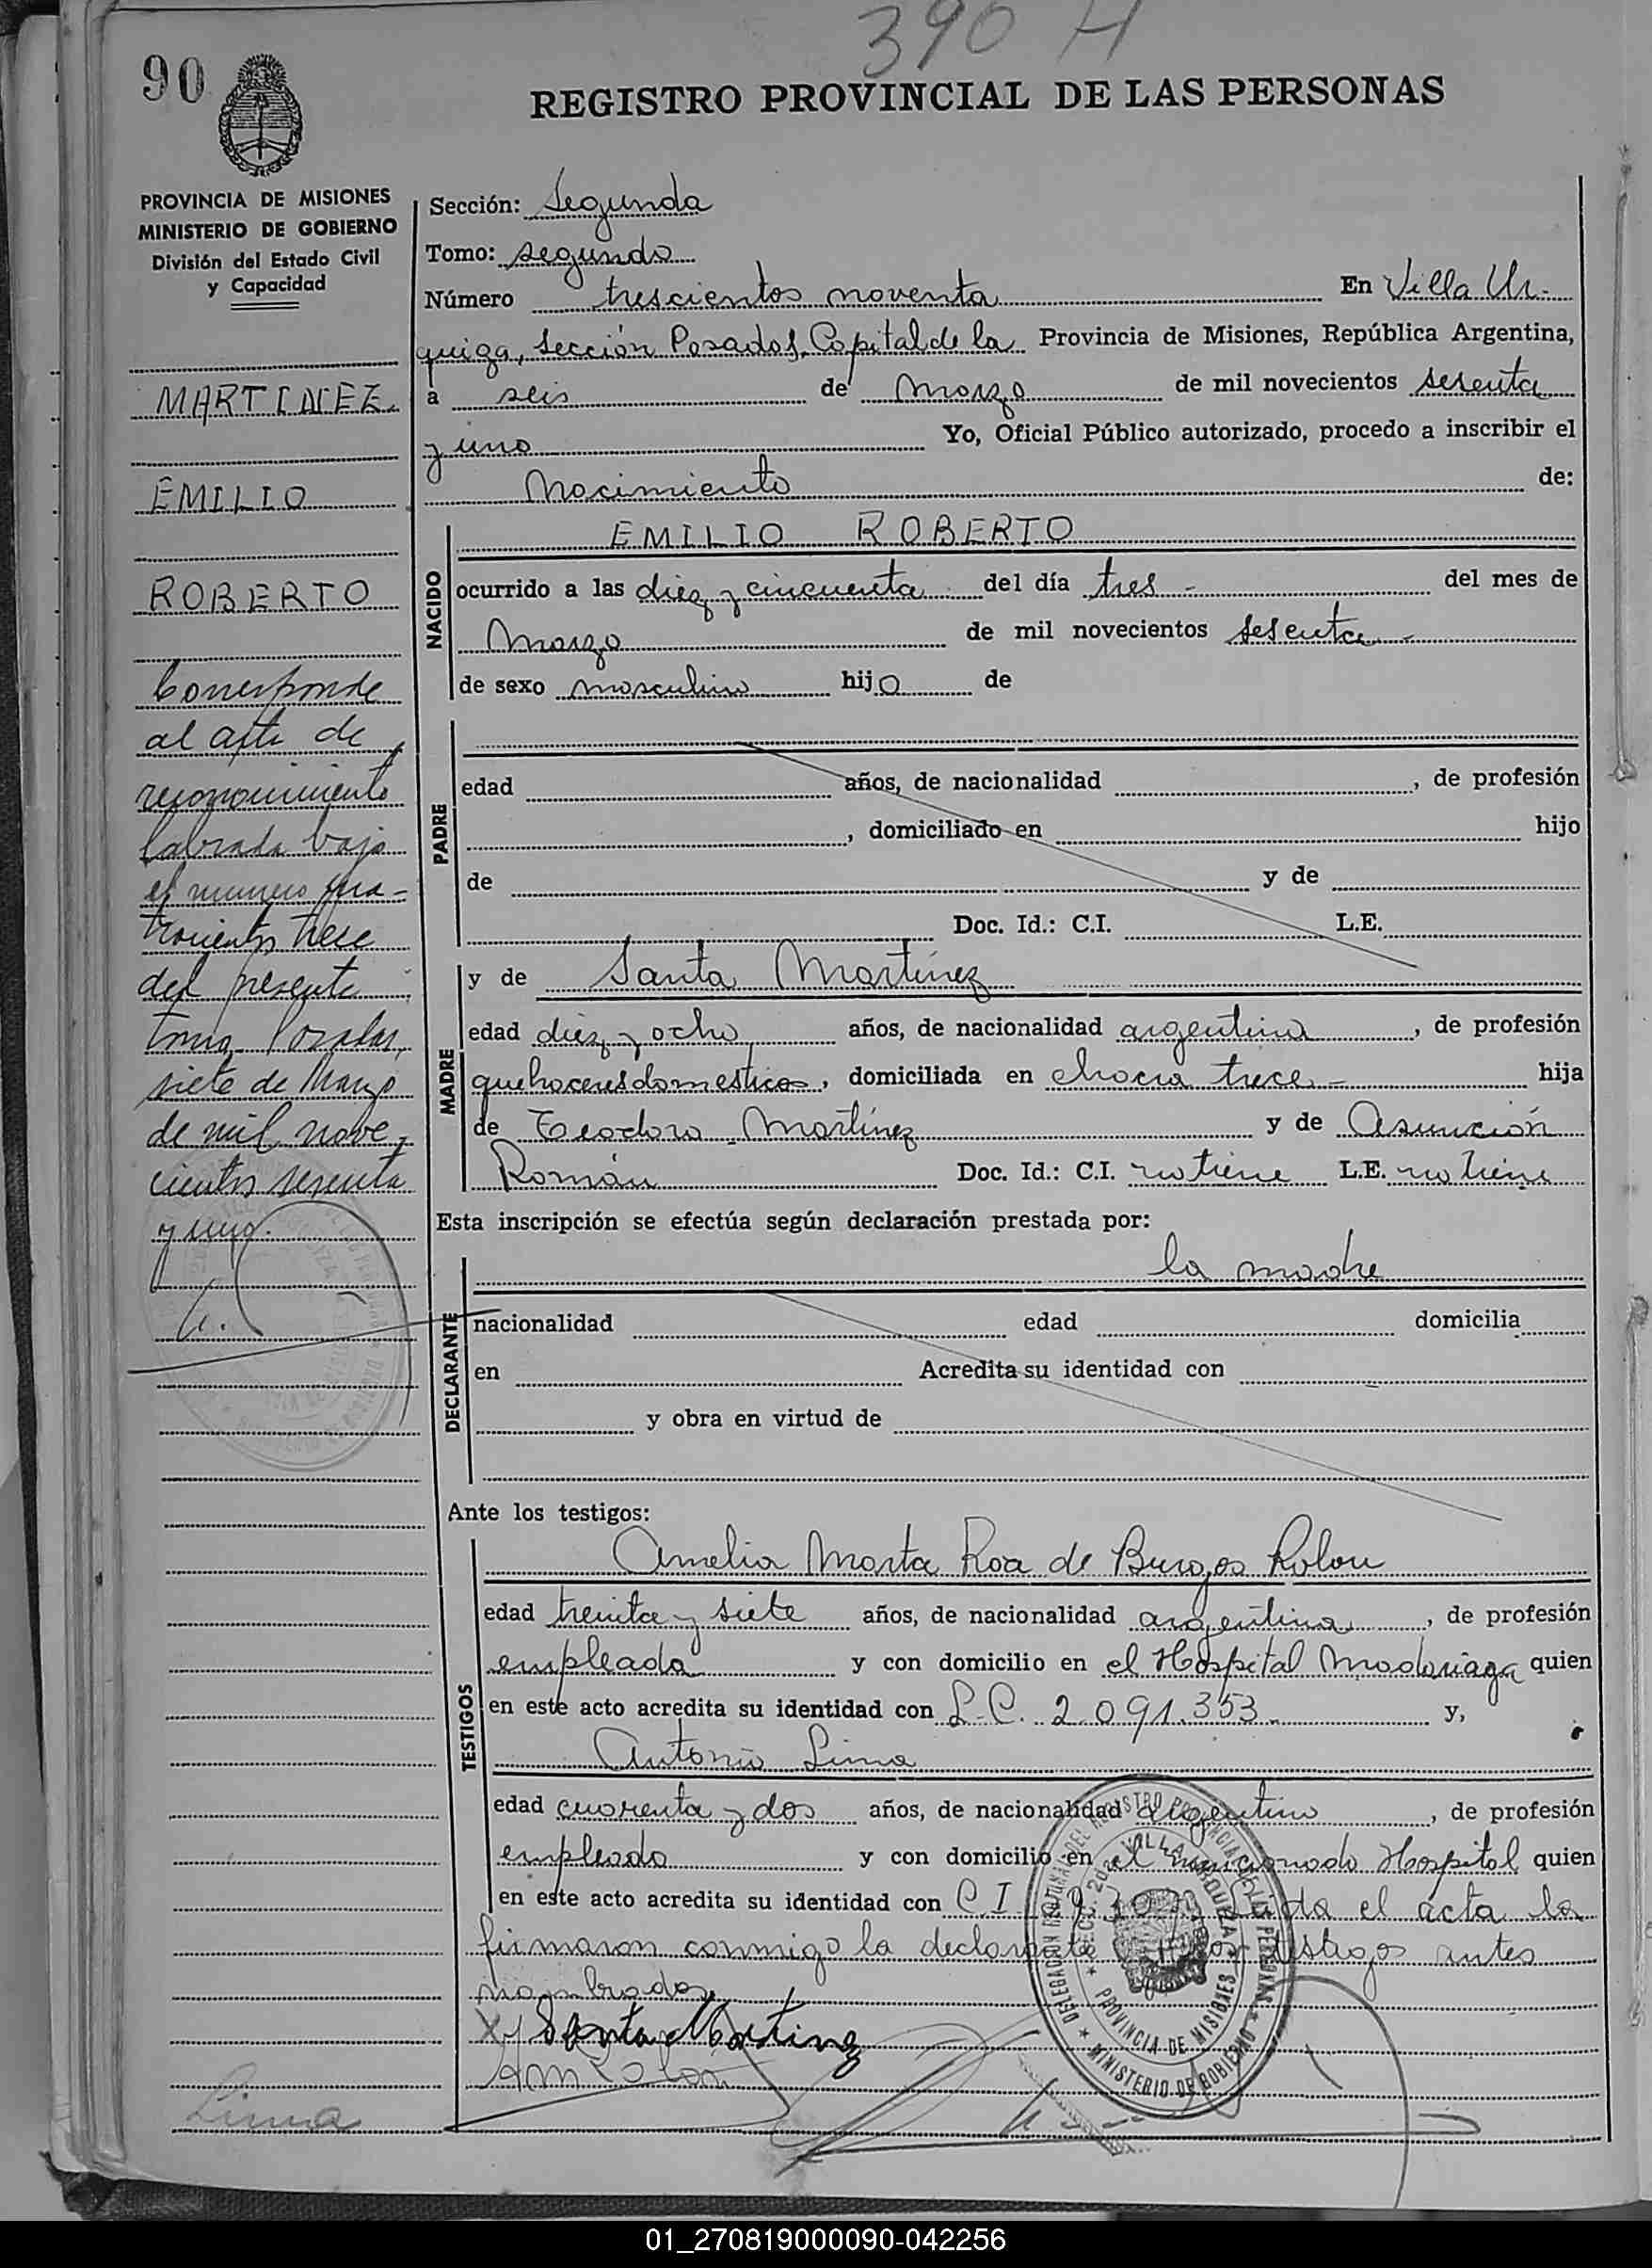 390 H
90
REGISTRO PROVINCIAL DE LAS PERSONAS
PROVINCIA DE MISIONES
MINISTERIO DE GOBIERNO
División del Estado Civil
y Capacidad
MARTINEZ
EMILIO
ROBERTO
Corresponde
al acta de
reconocimiento
labrada bajo
el numero cua-
trocientos trece
del presente
tomo. Posadas,
siete de Marzo
de mil nove-
cientos sesenta
y uno.
Sección: Segunda
Tomo: segundo
Número trescientos noventa En Villa Ur-
quiza, Sección Posadas, Capital de la Provincia de Misiones, República Argentina,
a seis de marzo de mil novecientos sesenta
y uno Yo, Oficial Público autorizado, procedo a inscribir el
Nacimiento de:
NACIDO
EMILIO ROBERTO
ocurrido a las diez y cincuenta del día tres - del mes de
Marzo de mil novecientos sesenta -
de sexo masculino hijo de
PADRE
edad años, de nacionalidad , de profesión
, domiciliado en hijo
de y de
Doc. Id.: C.I. L.E.
MADRE
y de Santa Martínez
edad diez y ocho años, de nacionalidad argentina , de profesión
quehaceres domesticos, domiciliada en chacra trece - hija
de Teodoro Martínez y de Asunción
Román Doc. Id.: C.I. no tiene L.E. no tiene
Esta inscripción se efectúa según declaración prestada por:
DECLARANTE
la madre
nacionalidad edad domicilia
en Acredita su identidad con
y obra en virtud de
Ante los testigos:
TESTIGOS
Amelia Marta Roa de Burgos Rolon
edad treinta y siete años, de nacionalidad argentina , de profesión
empleada y con domicilio en el Hospital Madariaga quien
en este acto acredita su identidad con L.C. 2.091.353- y,
Antonio Lima
edad cuarenta y dos años, de nacionalidad argentino , de profesión
empleado y con domicilio en el mencionado Hospital quien
en este acto acredita su identidad con C.I. el acta la
firmaron conmigo la declarante testigos antes
nombrados.
Santa Martinez
Lima
DELEGACION DEL REGISTRO PROVINCIAL DE LAS PERSONAS
MINISTERIO DE GOBIERNO
VILLA URQUIZA
PROVINCIA DE MISIONES
01_270819000090-042256